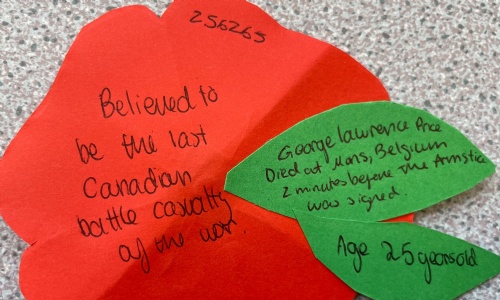 256265
Believed to
be the last
Canadian
battle casualty
of the war.
George lawrence Price
Died at Mons, Belgium
2 minutes before The Armstice
was signed
Age 25 years old